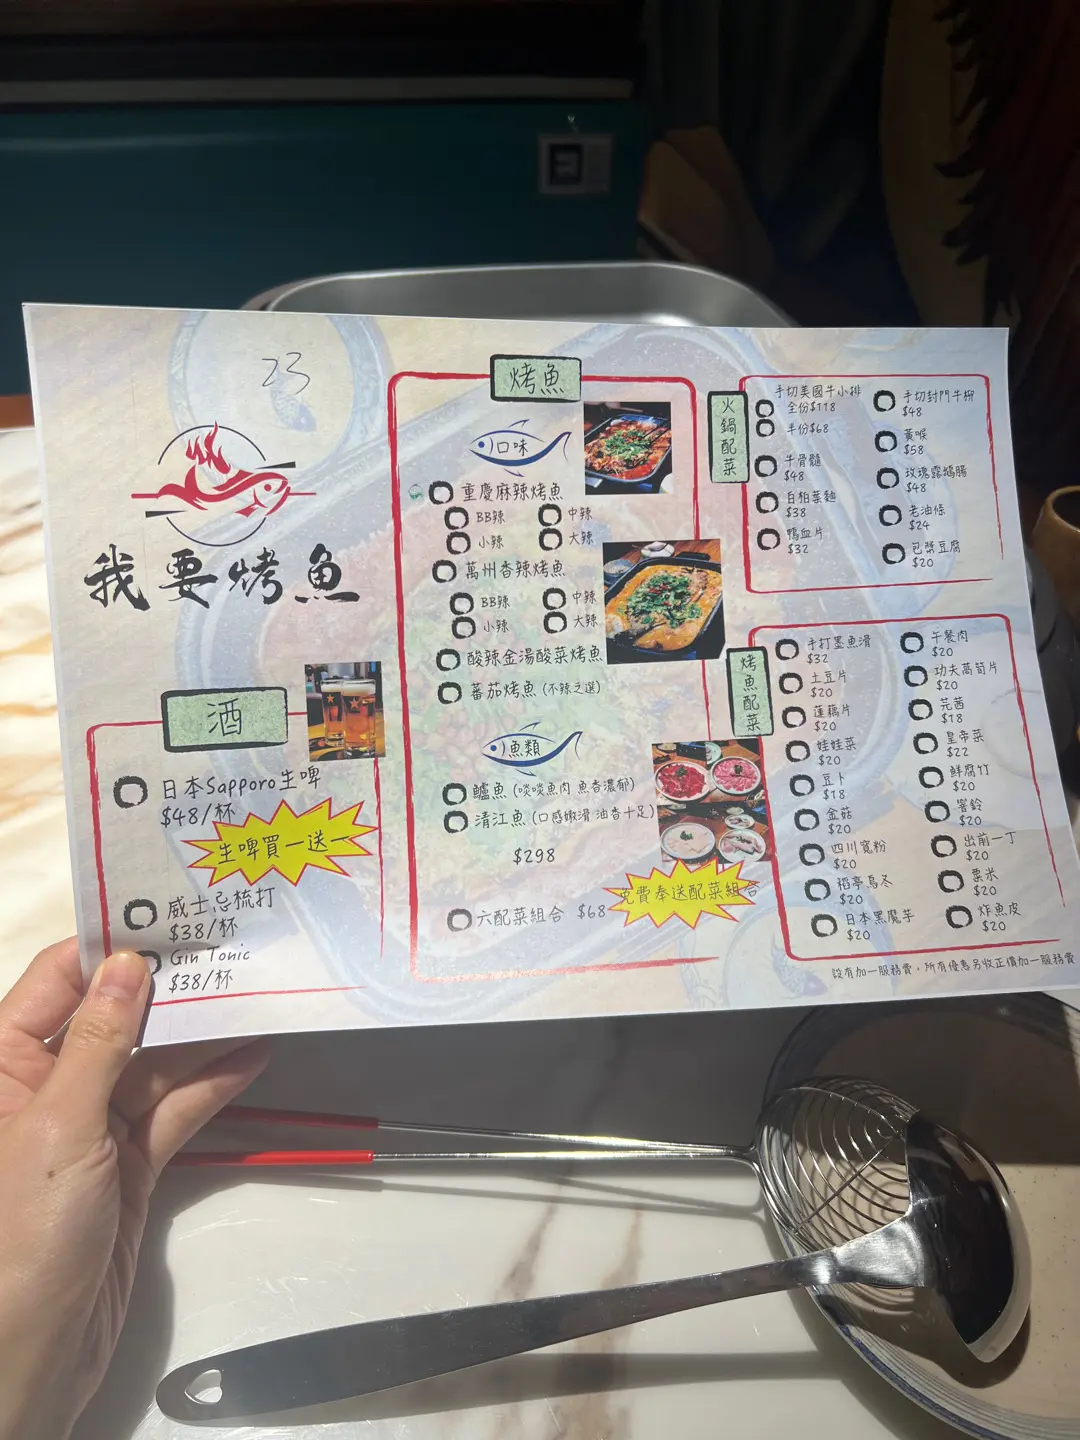 23
我要烤魚
酒
日本Sapporo生啤
$48/杯
生啤買一送一
威士忌梳打
$38/杯
Gin Tonic
$38/杯
烤魚
口味
重慶麻辣烤魚
BB辣
中辣
小辣
大辣
萬州香辣烤魚
BB辣
中辣
小辣
大辣
酸辣金湯酸菜烤魚
蕃茄烤魚 (不辣之選)
魚類
鱸魚 (啖啖魚肉 魚香濃郁)
清江魚 (口感嫩滑 油香十足)
$298
免費奉送配菜組合
六配菜組合 $68
火鍋配菜
手切美國牛小排
全份$118
半份$68
牛骨髓
$48
白柏葉
$38
鴨血片
$32
手切封門牛柳
$48
黃喉
$58
玫瑰露鵝腸
$48
老油條
$24
包漿豆腐
$20
烤魚配菜
手打墨魚滑
$32
土豆片
$20
蓮藕片
$20
娃娃菜
$20
豆卜
$18
金菇
$20
四川寬粉
$20
稻亭烏冬
$20
日本黑魔芋
$20
午餐肉
$20
功夫萵筍片
$20
芫茜
$18
皇帝菜
$22
鮮腐竹
$20
響鈴
$20
出前一丁
$20
粟米
$20
炸魚皮
$20
設有加一服務費，所有優惠另收正價加一服務費